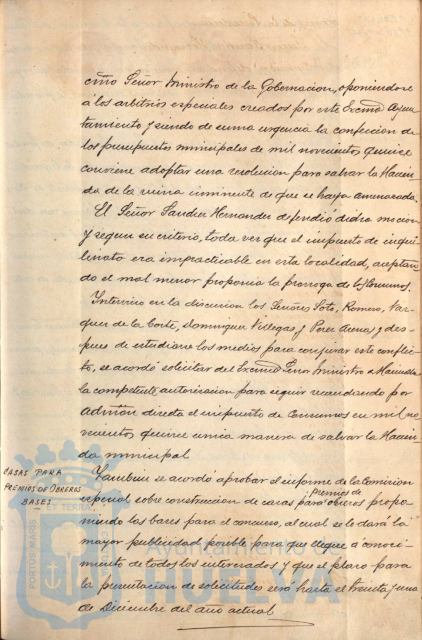 cmo Señor Ministro de la Gobernacion, oponiendose
á los arbitrios especiales creados por este Excmo Ayun
tamiento y siendo de suma urgencia la confeccion de
los presupuestos municipales de mil novecientos quince
conviene adoptar una resolucion para salvar la Hacien
da de la ruina inminente de que se haya amenazada.
El Señor Sanchez Hernandez defendió dicha mocion
y segun su criterio, toda vez que el impuesto de inqui
linato era impracticable en esta localidad, aceptan
do el mal menor proponia la proroga de Consumos.
Intervino en la discusion los Señores Soto, Romero, Vaz
quez de la Corte, Dominguez Villegas, y Perez Arenas y des
pues de estudiarse los medios para conjurar este conflic
to, se acordó solicitar del Excmo Señor Ministro de Hacienda
la competente autorizacion para seguir recaudando por
admon directa el impuesto de Consumos en mil no
vecientos quince unica manera de salvar la Hacien
da municipal
CASAS PARA
PREMIOS DE OBREROS
BASES
Tambien se acordó aprobar el informe de la Comision
especial sobre construccion de casas para premios de obreros propo
niendo las bases para el concurso, al cual se le dará la
mayor publicidad posible para que llegue a conoci
miento de todos los interesados y que el plazo para
la presentacion de solicitudes sea hasta el treinta y uno
de Diciembre del año actual.
PORTUS MARIS ET TERRAE
Ayuntamiento de
HUELVA